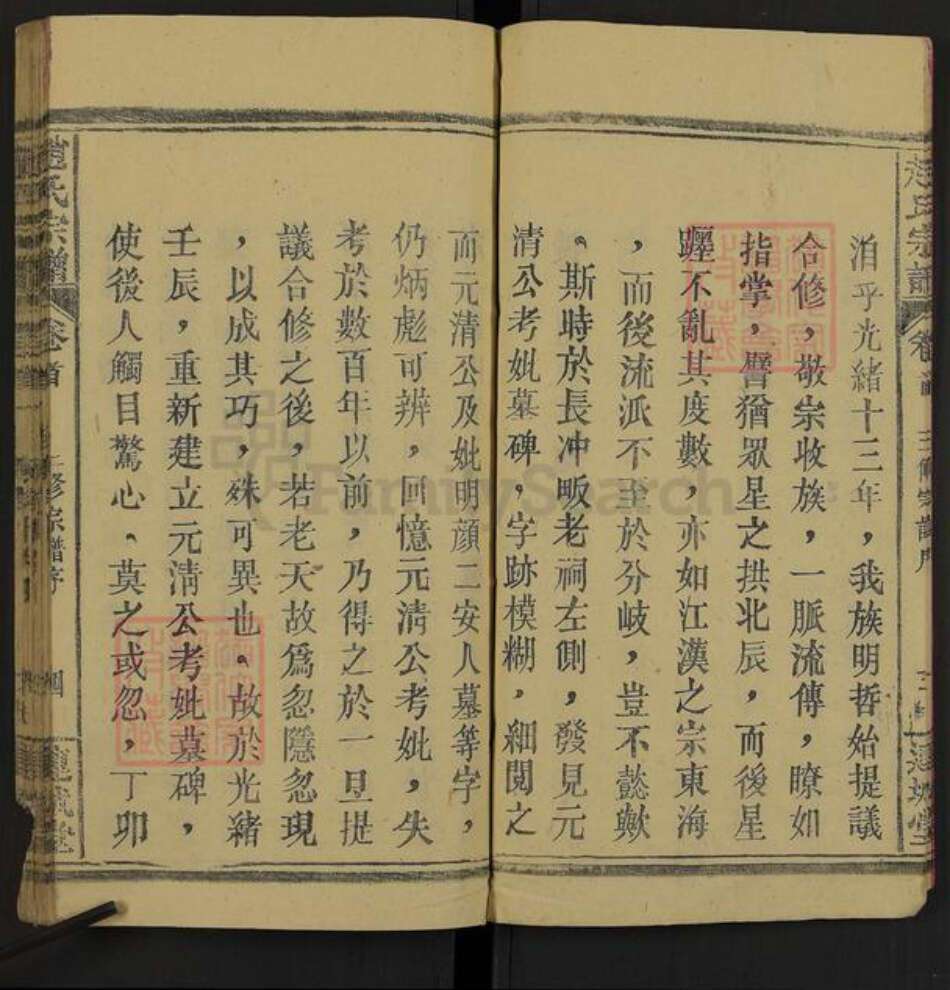 趙氏宗譜
洎乎光緒十三年，我族明哲始提議
合修，敬宗收族，一脈流傳，瞭如
指掌，譬猶眾星之拱北辰，而後星
躔不亂其度數，亦如江漢之宗東海
，而後流派不至於分岐，豈不懿歟
。斯時於長冲畈老祠左側，發見元
清公考妣墓碑，字跡模糊，細閱之
而元清公及妣明顏二安人墓等字，
仍炳彪可辨，回憶元清公考妣，失
考於數百年以前，乃得之於一旦提
議合修之後，若老天故爲忽隱忽現
，以成其巧，殊可異也。故於光緒
壬辰，重新建立元清公考妣墓碑，
使後人觸目驚心。莫之或忽，丁卯
趙氏宗譜 卷首 三修宗譜序 四
FamilySearch